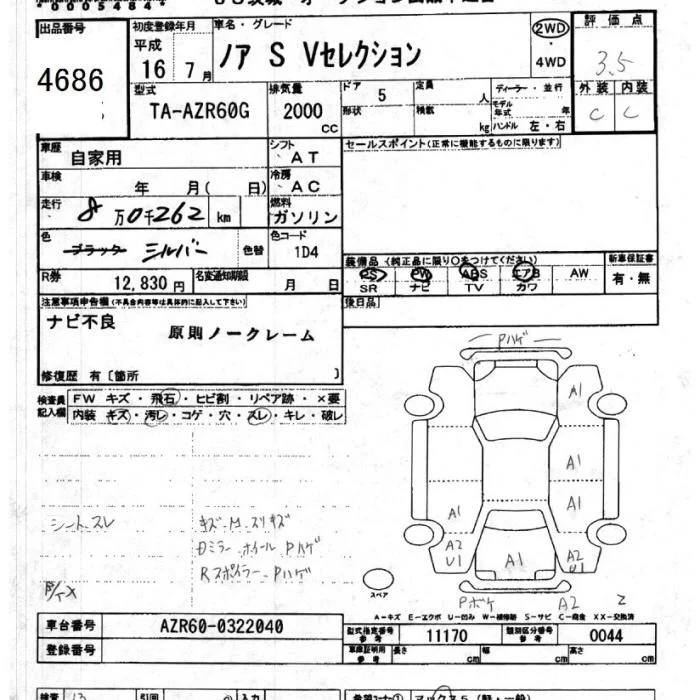 *00005484*
出品番号
4686
初度登録年月
平成
16 7月
車名・グレード
ノア S Vセレクション
2WD
・
4WD
評価点
3.5
外装 内装
C C
型式
TA-AZR60G
排気量
2000
cc
ドア
5
形状
定員
人
積載
kg
ディーラー・並行
モデル
年式 年
ハンドル 左・右
車歴
自家用
シフト
AT
セールスポイント(正常に機能するものに限ります)
車検
年 月( 日)
冷房
AC
走行
8万0千262 km
燃料
ガソリン
色
ブラック シルバー
色替
色コード
1D4
装備品(純正品に限り○をつけてください)
PS PW ABS エアB AW
SR ナビ TV カワ
新車保証書
有・無
R券
12,830円
名変通知期限
月 日
後日品
注意事項申告欄(不具合内容等は具体的に記入して下さい)
ナビ不良
原則ノークレーム
修復歴 有〔箇所 〕
検査員
記入欄
FW キズ・飛石・ヒビ割・リペア跡・×要
内装 キズ・汚レ・コゲ・穴・スレ・キレ・破レ
シートスレ
キズ・M・スリキズ
Dミラー・ホイールPハゲ
RスポイラーPハゲ
Pハゲ
A1
A1
A1
A1
A2
U1
A1
A2
U1
Pボケ
A2
2
スペア
A-キズ E-エクボ U-凹み W-補修跡 S-サビ C-腐食 XX-交換済
車台番号
AZR60-0322040
登録番号
型式指定番号
参考
11170
類別区分番号
参考
0044
車庫証明用
参考
長さ cm
幅 cm
高さ cm
検査
13
引回
入力
希望コーナー①